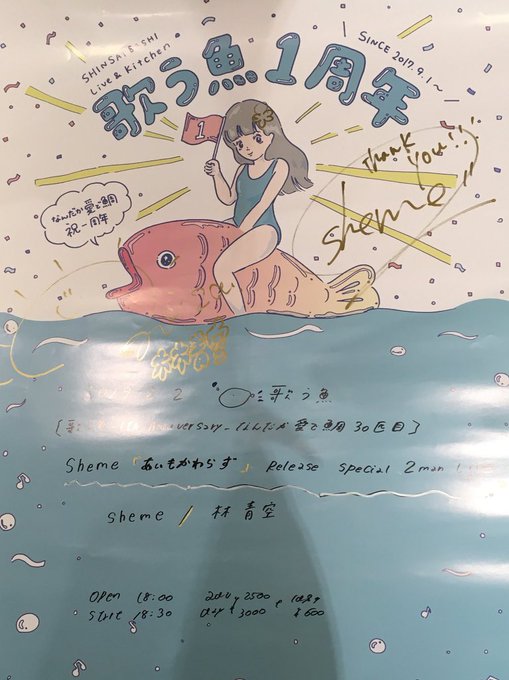 SHINSAIBASHI
Live & Kitchen
SINCE 2017.9.1~
歌う魚1周年
1
Thank
You!!
sheme
なんだか愛で鯛
祝一周年
2 歌う魚
Anniversary なんだか愛で鯛 30匹目]
Sheme 「あいもかわらず」 Release special 2man
sheme / 林 青空
open 18:00 2500
start 18:30 3000 ¥600